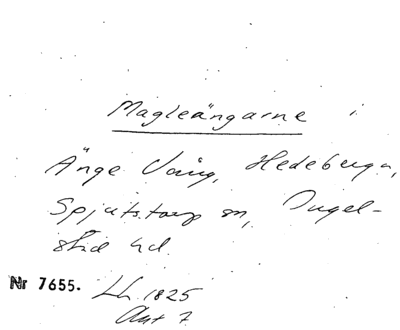 Magleängarne i
Änge Vång, Hedeberga,
Spjutstorp sn, Ingel-
stad hd.
Nr 7655. Lh. 1825
Akt 7